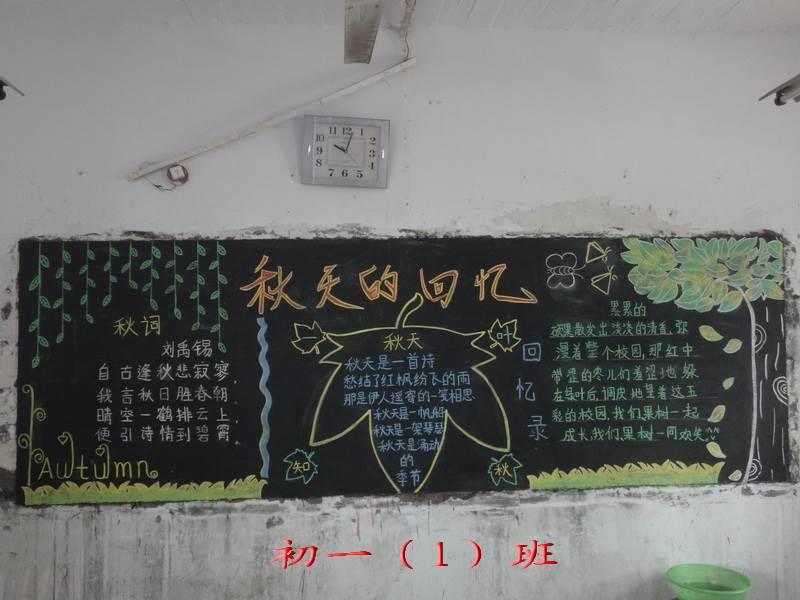 12
1
2
3
4
5
6
7
8
9
10
11
秋天的回忆
秋词
刘禹锡
自古逢秋悲寂寥，
我言秋日胜春朝，
晴空一鹤排云上，
便引诗情到碧霄，
Autumn
一叶知秋
秋天
秋天是一首诗
愁结了红枫纷飞的雨
那是伊人遥寄的一笺相思
秋天是一帆船
秋天是一架琴瑟
秋天是涌动
的
季节
回忆录
累累的
硕果散发出淡淡的清香，弥
漫着整个校园，那红中
带涩的枣儿们羞涩地躲
在绿叶后，调皮地望着这五
彩的校园。我们、果树一起
成长，我们、果树一同欢笑
初一（1）班